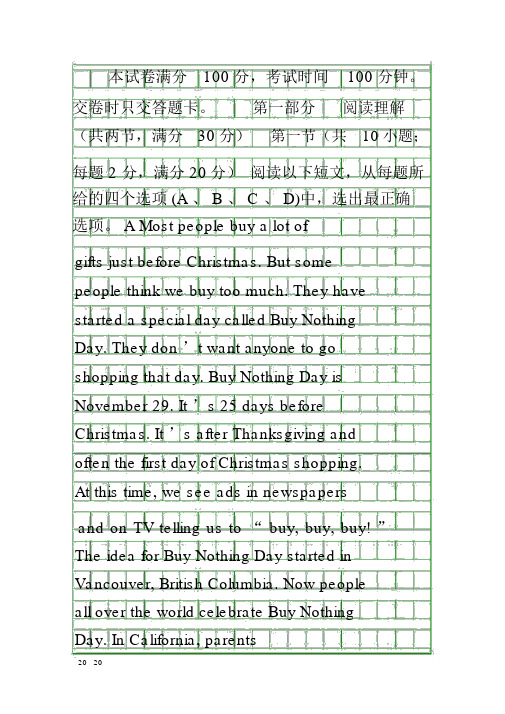 本试卷满分 100 分，考试时间 100 分钟。
交卷时只交答题卡。 第一部分 阅读理解
（共两节，满分 30 分） 第一节（共 10 小题；
每题 2 分，满分 20 分） 阅读以下短文，从每题所
给的四个选项 (A 、 B 、 C 、 D)中，选出最正确
选项。 A Most people buy a lot of
gifts just before Christmas. But some
people think we buy too much. They have
started a special day called Buy Nothing
Day. They don ’ t want anyone to go
shopping that day. Buy Nothing Day is
November 29. It ’ s 25 days before
Christmas. It ’ s after Thanksgiving and
often the first day of Christmas shopping.
At this time, we see ads in newspapers
and on TV telling us to “ buy, buy, buy! ”
The idea for Buy Nothing Day started in
Vancouver, British Columbia. Now people
all over the world celebrate Buy Nothing
Day. In California, parents
20 20